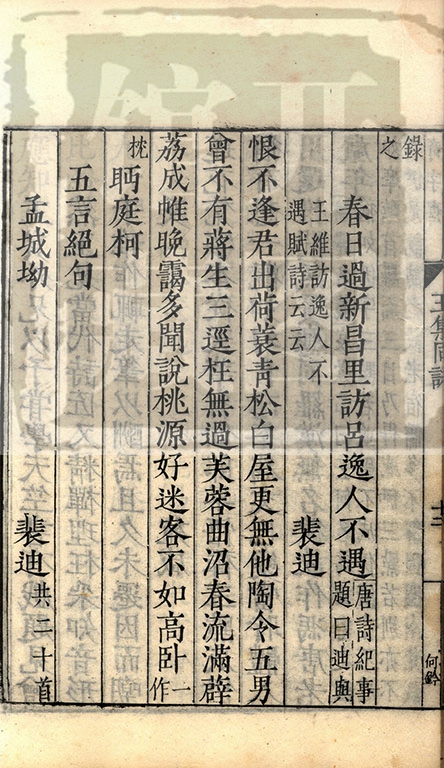 錄
之
春日過新昌里訪呂逸人不遇 唐詩紀事
題曰迪與
王維訪逸人不
遇賦詩云云
裴迪
恨不逢君出荷蓑青松白屋更無他陶令五男
曾不有蔣生三逕枉無過芙蓉曲沼春流滿薜
荔成帷晚靄多聞說桃源好迷客不如高卧一作
枕
眄庭柯
五言絕句
孟城坳 裴迪 共二十首
十三
何鈐